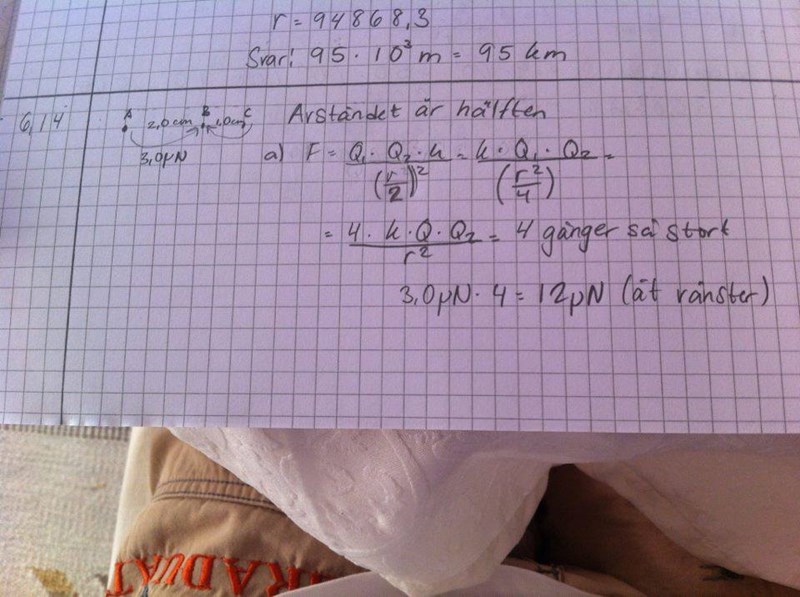 r = 94868,3
Svar: 95 · 10³ m = 95 km
6,14
A 2,0cm B 1,0cm C
3,0μN
Avståndet är hälften
a) F = Q₁ · Q₂ · k / (r/2)² = k · Q₁ · Q₂ / (r²/4) =
= 4 · k · Q · Q₂ / r² = 4 gånger så stort
3,0μN · 4 = 12μN (åt vänster)
GRADUAT